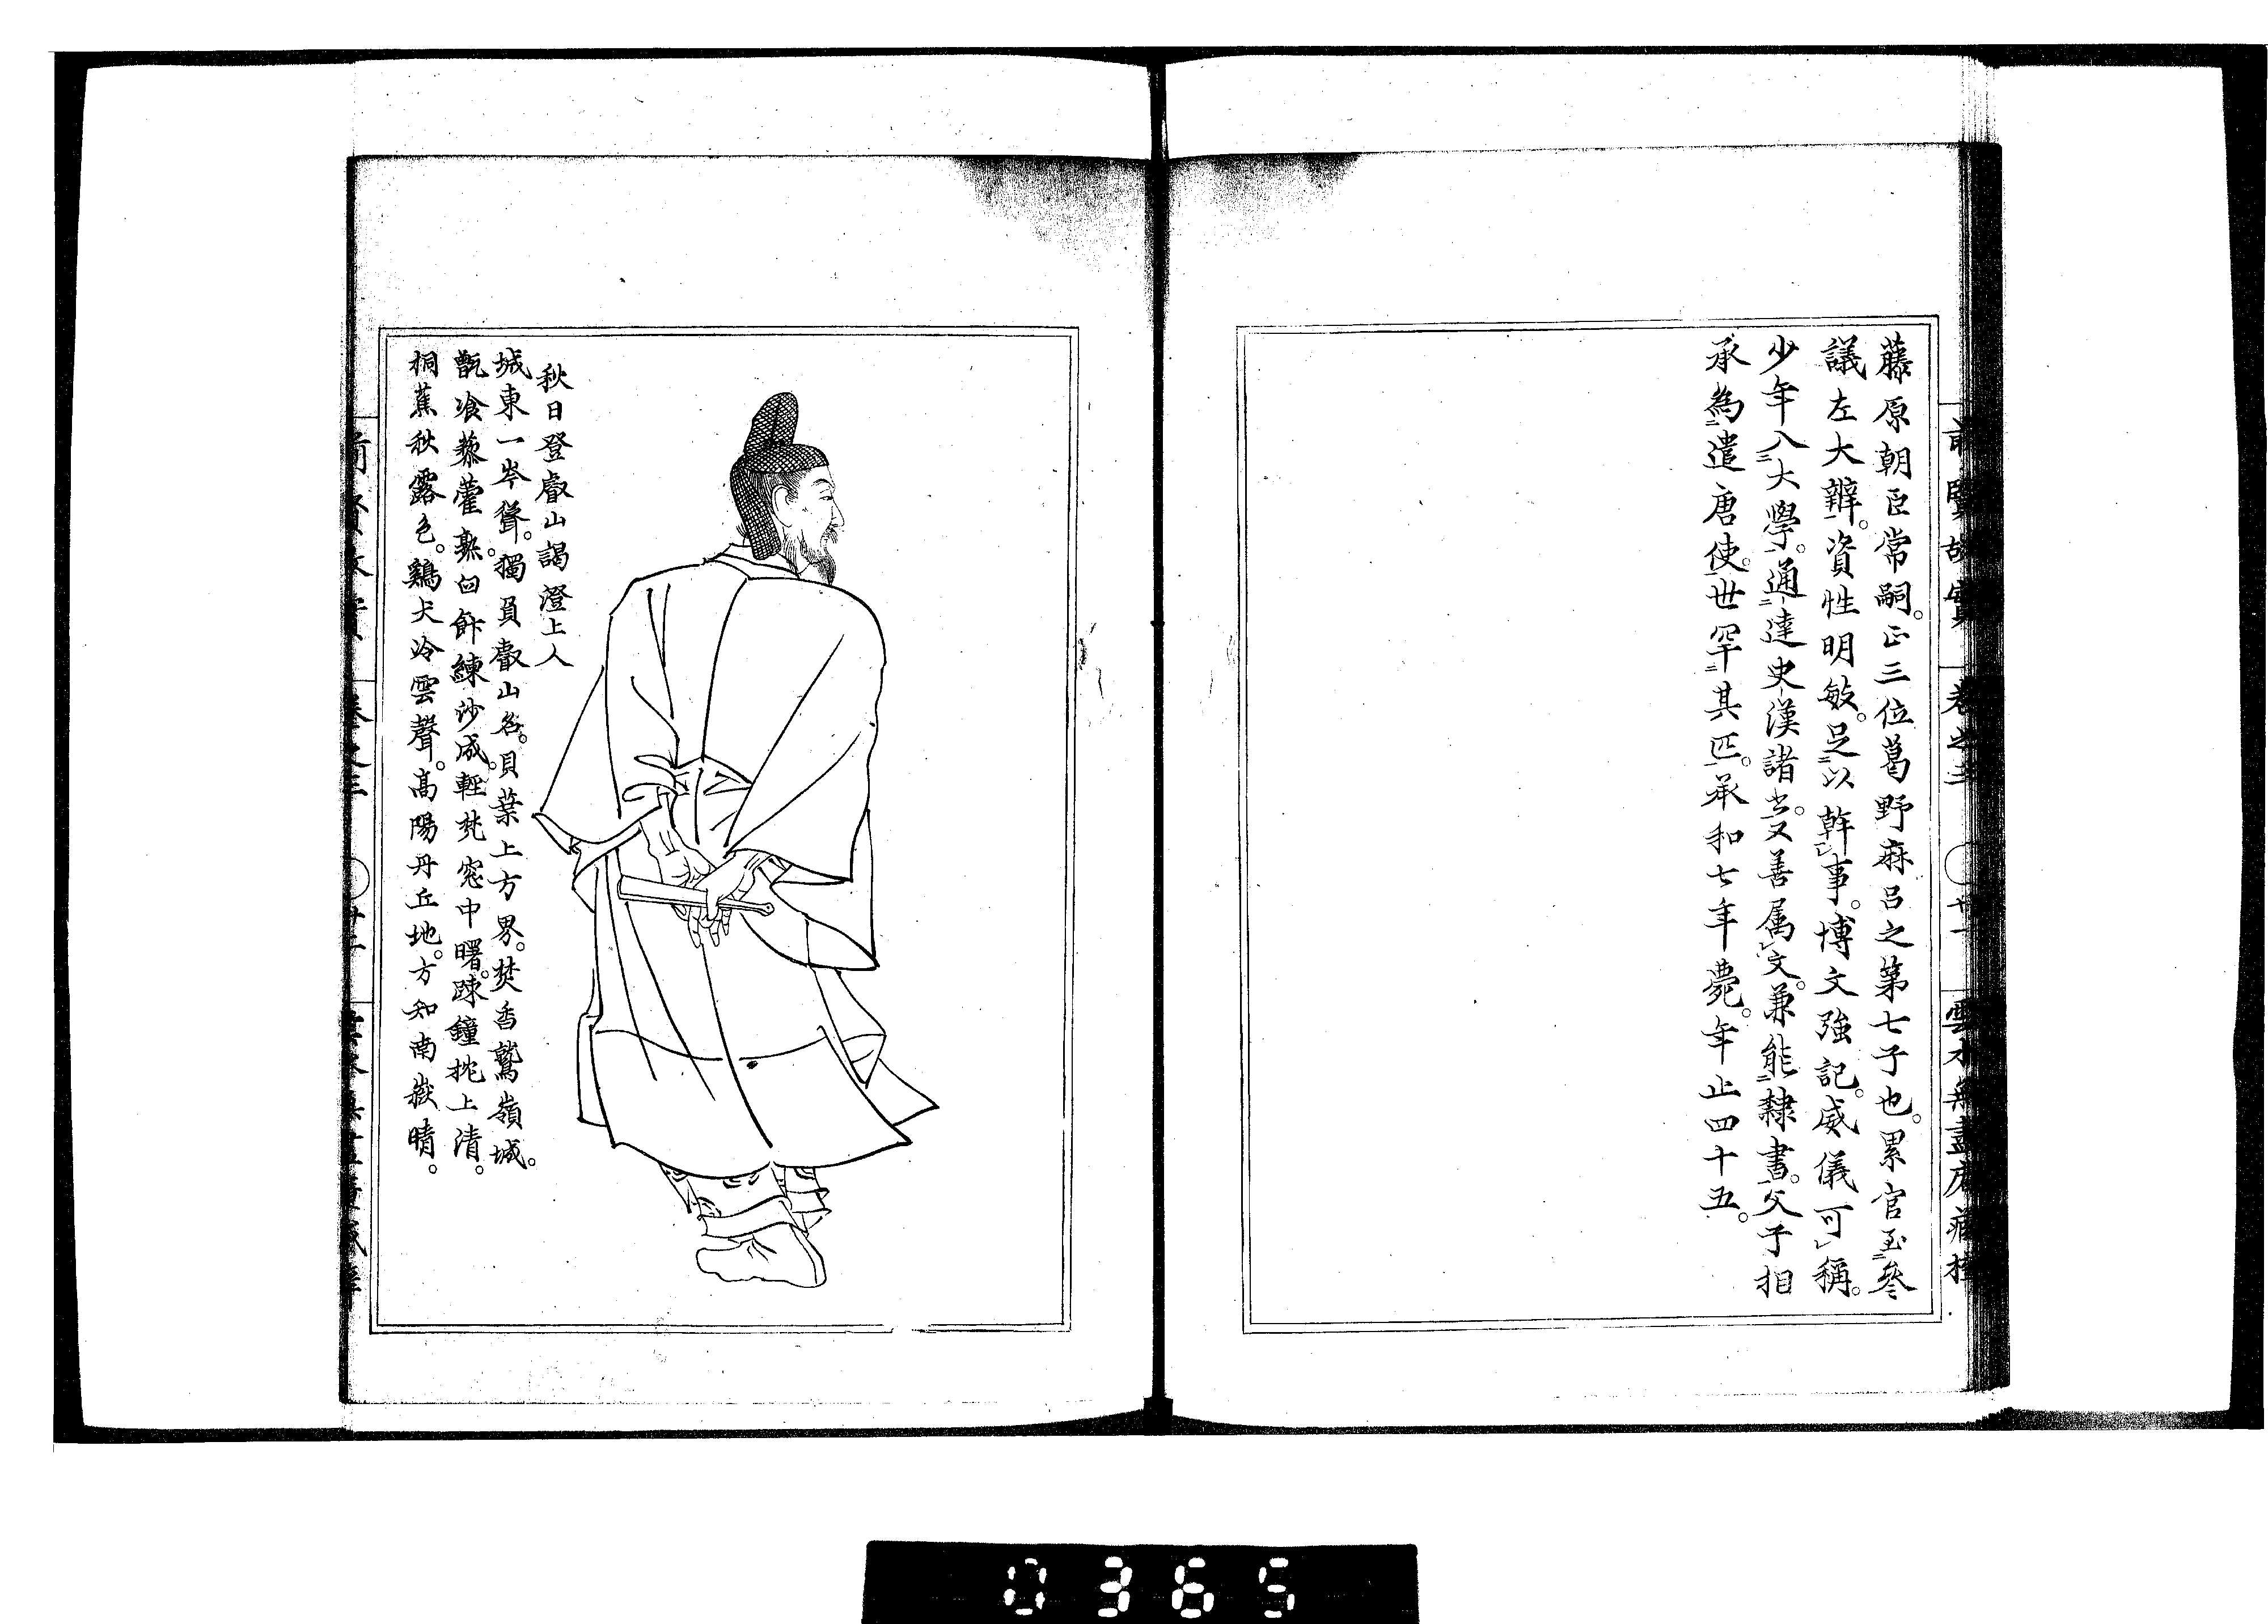 前賢故實 卷之三 廿一 雲水無盡庵藏
藤原朝臣常嗣。正三位葛野麻呂之第七子也。累官至二參
議左大辨一。資性明敏。足二以幹一レ事。博文強記。威儀可レ稱。
少年入二大學一。通二達史漢諸書一。又善属レ文。兼能二隸書一。父子相
承為二遣唐使一。世罕二其匹一。承和七年薨。年止四十五。
秋日登叡山謁澄上人
城東一岑聳。獨負叡山名。貝葉上方界。焚香鷲嶺城。
甑飡藜藿熟。臼餅練沙成。輕梵窓中曙。疎鐘枕上清。
桐蕉秋露色。鷄犬冷雲聲。高陽丹丘地。方知南嶽晴。
0365